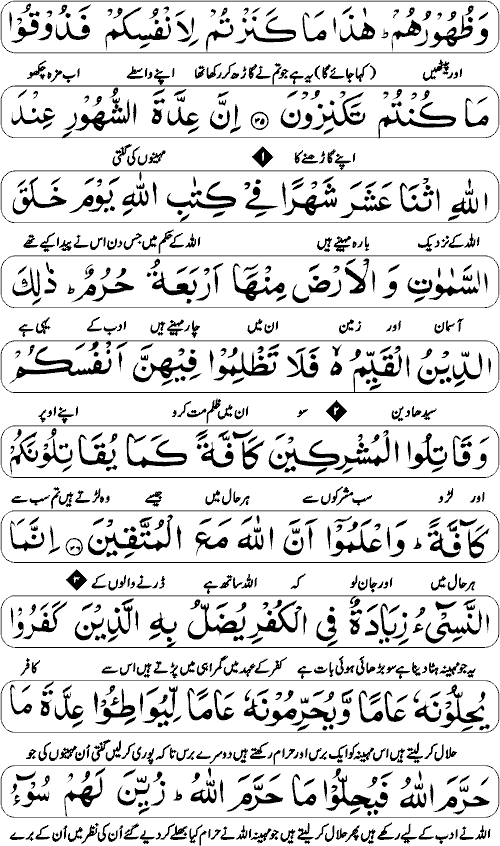 وَظُهُوْرُهُمْ ؕ هٰذَا مَا كَنَزْتُمْ لِاَنْفُسِكُمْ فَذُوْقُوْا
اور پیٹھیں (کہا جائے گا) یہ ہے جو تم نے گاڑھ کر رکھا تھا اپنے واسطے اب مزہ چکھو
مَا كُنْتُمْ تَكْنِزُوْنَ ﴿۳۵﴾ اِنَّ عِدَّةَ الشُّهُوْرِ عِنْدَ
اپنے گاڑھنے کا ۱ مہینوں کی گنتی
اللّٰهِ اثْنَا عَشَرَ شَهْرًا فِيْ كِتٰبِ اللّٰهِ يَوْمَ خَلَقَ
اللہ کے نزدیک بارہ مہینے ہیں اللہ کے حکم میں جس دن اس نے پیدا کیے تھے
السَّمٰوٰتِ وَ الْاَرْضَ مِنْهَاۤ اَرْبَعَةٌ حُرُمٌ ؕ ذٰلِكَ
آسمان اور زمین ان میں چار مہینے ہیں ادب کے یہی ہے
الدِّيْنُ الْقَيِّمُ ۙ۬ فَلَا تَظْلِمُوْا فِيْهِنَّ اَنْفُسَكُمْ
سیدھا دین ۲ سو ان میں ظلم مت کرو اپنے اوپر
وَقَاتِلُوا الْمُشْرِكِيْنَ كَآفَّةً كَمَا يُقَاتِلُوْنَكُمْ
اور لڑو سب مشرکوں سے ہر حال میں جیسے وہ لڑتے ہیں تم سب سے
كَآفَّةً ؕ وَاعْلَمُوْۤا اَنَّ اللّٰهَ مَعَ الْمُتَّقِيْنَ ﴿۳۶﴾ اِنَّمَا
ہر حال میں اور جان لو کہ اللہ ساتھ ہے ڈرنے والوں کے ۳
النَّسِيْٓءُ زِيَادَةٌ فِي الْكُفْرِ يُضَلُّ بِهِ الَّذِيْنَ كَفَرُوْا
یہ جو مہینہ ہٹا دینا ہے سو بڑھائی ہوئی بات ہے کفر کے عہد میں گمراہی میں پڑتے ہیں اس سے کافر
يُحِلُّوْنَهٗ عَامًا وَّيُحَرِّمُوْنَهٗ عَامًا لِّيُوَاطِئُوْا عِدَّةَ مَا
حلال کر لیتے ہیں اس مہینہ کو ایک برس اور حرام رکھتے ہیں دوسرے برس تاکہ پوری کر لیں گنتی اُن مہینوں کی جو
حَرَّمَ اللّٰهُ فَيُحِلُّوْا مَا حَرَّمَ اللّٰهُ ؕ زُيِّنَ لَهُمْ سُوْٓءُ
اللہ نے ادب کے لیے رکھے ہیں پھر حلال کر لیتے ہیں جو مہینہ اللہ نے حرام کیا بھلے کر دیے گئے اُن کی نظر میں اُن کے برے